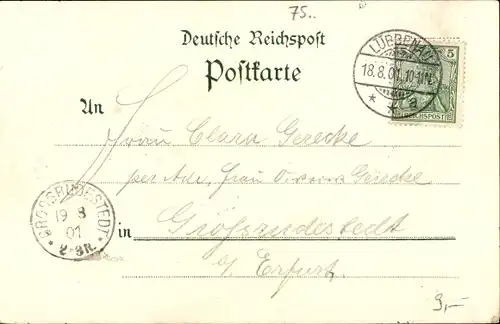 75..
Deutsche Reichspost
Postkarte
LÜBBENAU
18.8.01. 10-11 N.
* * a
5
REICHSPOST
An
Frau Clara Gericke
per Adr. Frau Gericke
in Großrudestedt
b/ Erfurt.
GROSSRUDESTEDT
19 8
01
2-3N.
9,-